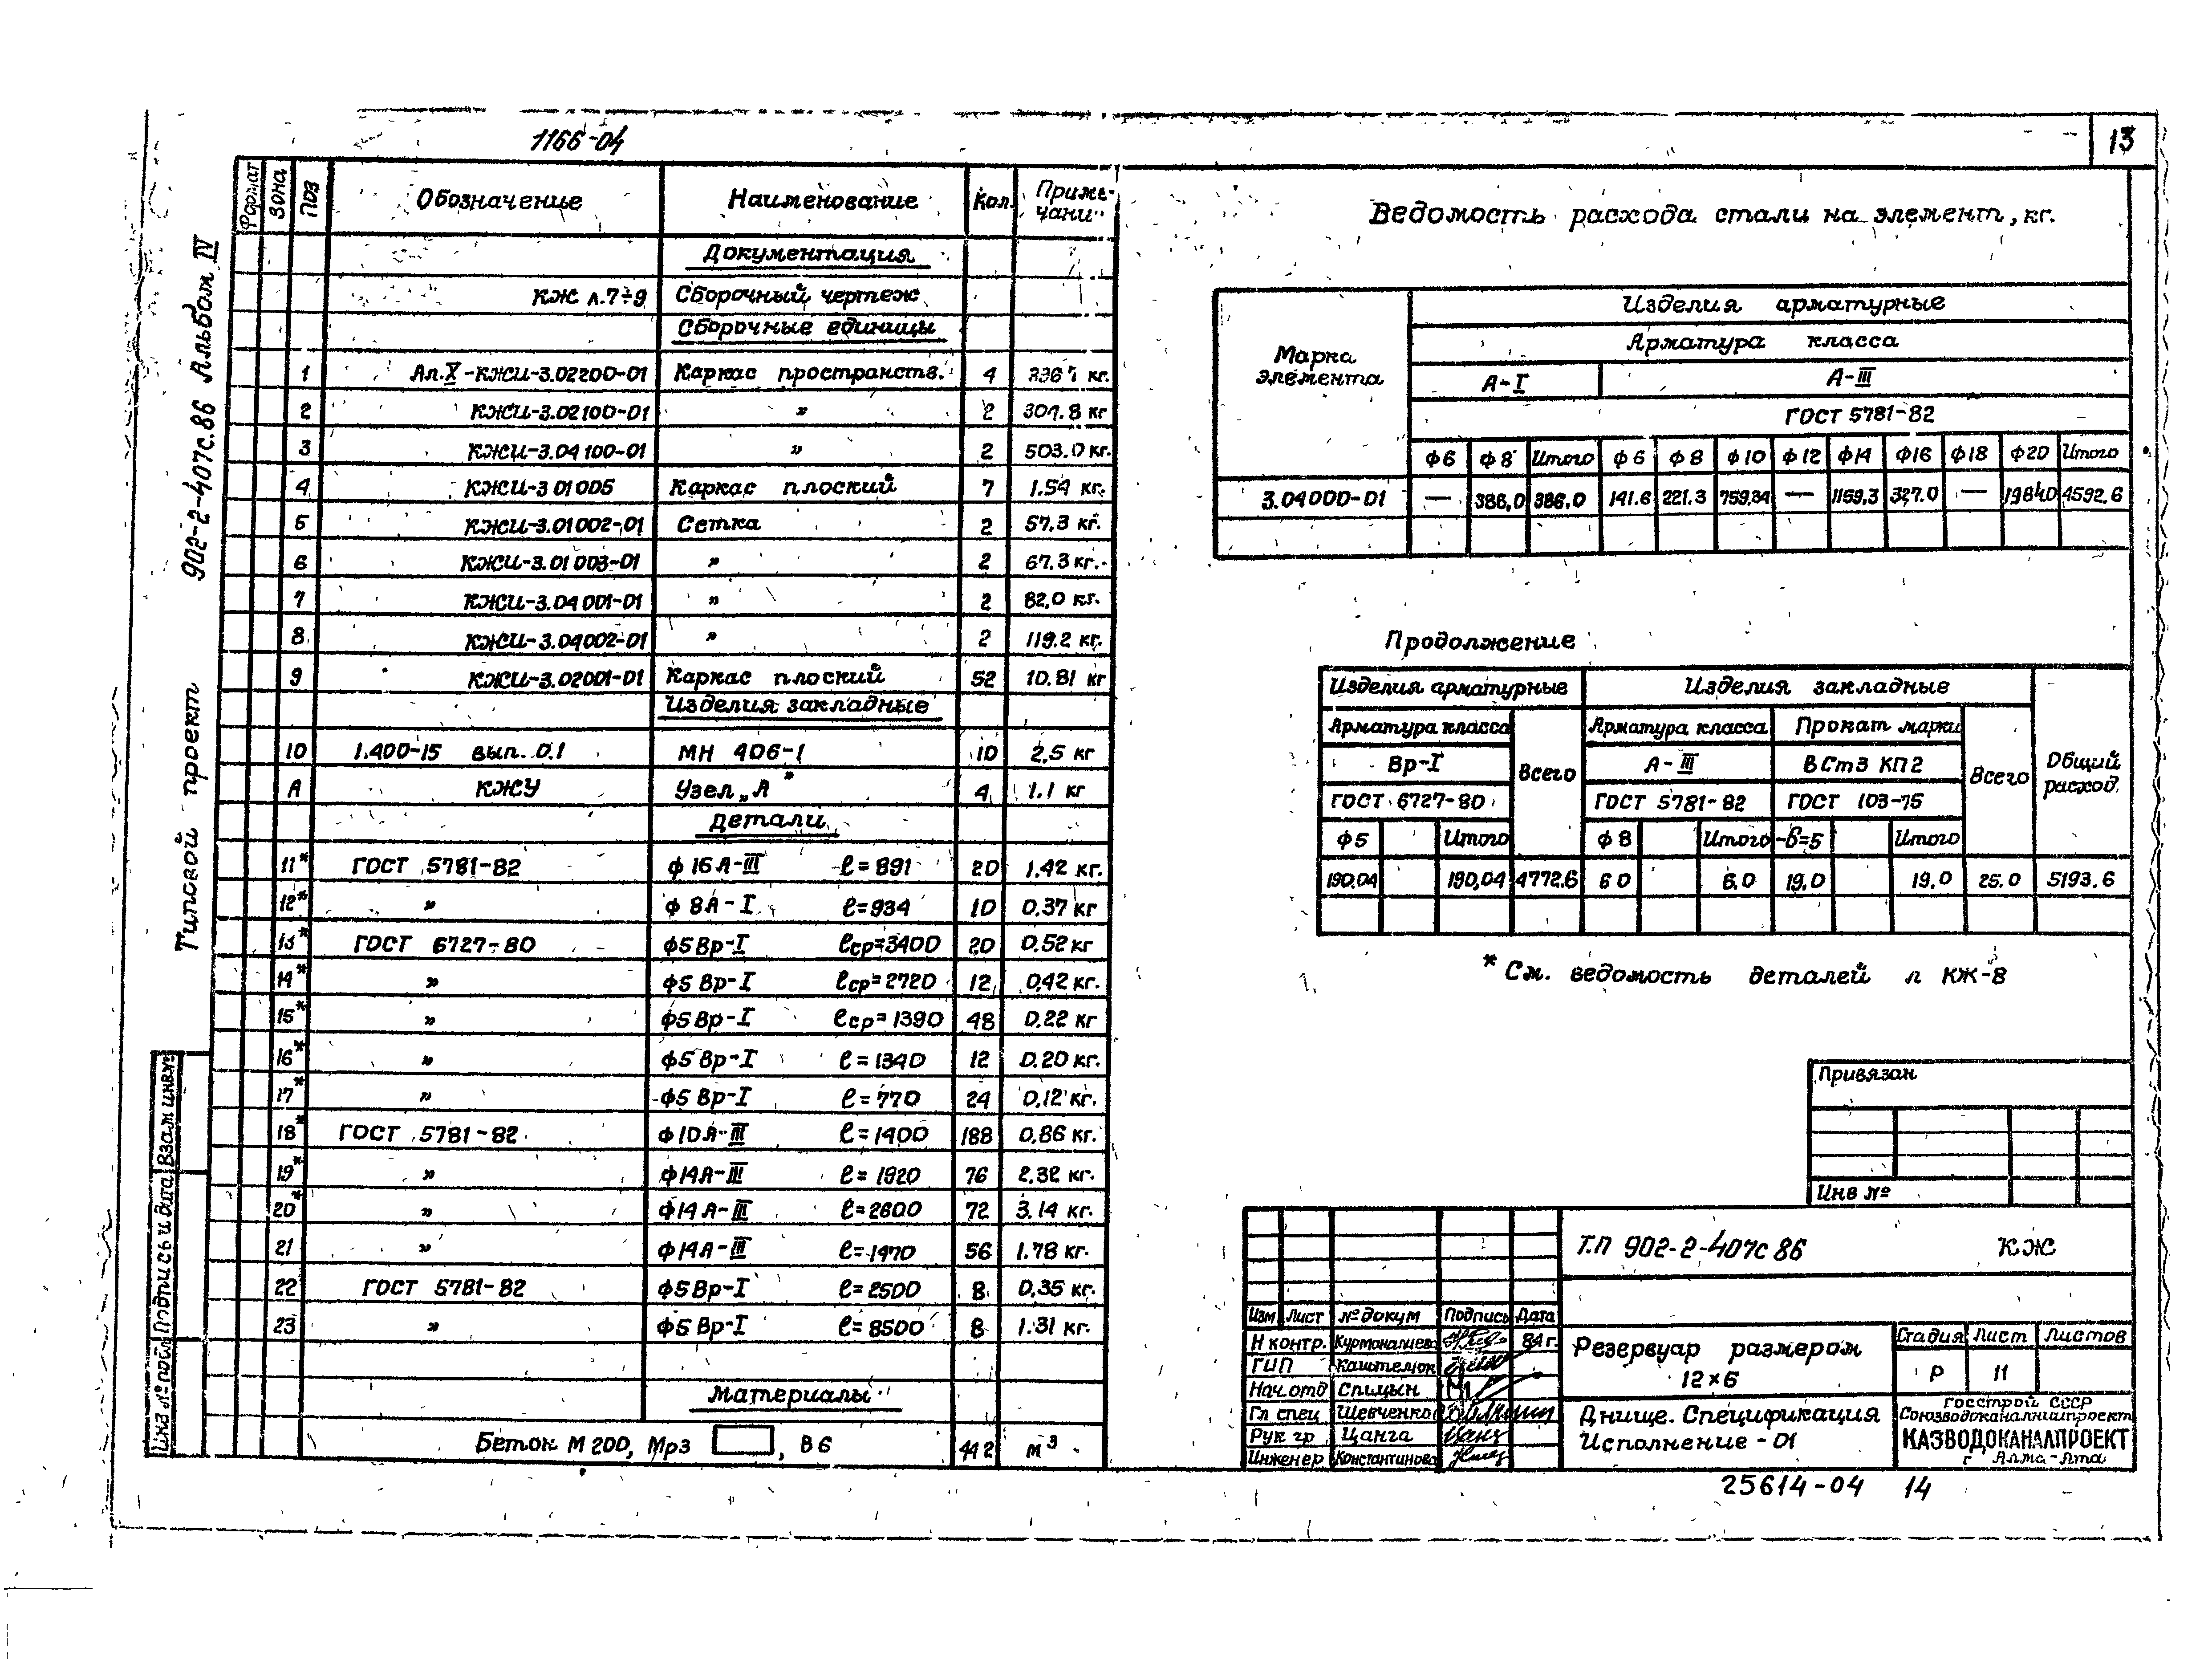 1166-04
13
Типовой проект 902-2-407с.86 Альбом IV
Формат Зона Поз Обозначение Наименование Кол. Примечани
Документация
КЖ л.7÷9 Сборочный чертеж
Сборочные единицы
1 Ал.X-КЖИ-3.02200-01 Каркас пространств. 4 кг.
2 КЖИ-3.02100-01 " 2 301.8 кг
3 КЖИ-3.04100-01 " 2 503.0 кг.
4 КЖИ-3 01005 Каркас плоский 7 1.54 кг.
5 КЖИ-3.01002-01 Сетка 2 57.3 кг.
6 КЖИ-3.01003-01 " 2 67.3 кг.
7 КЖИ-3.04001-01 " 2 82,0 кг.
8 КЖИ-3.04002-01 " 2 119.2 кг.
9 КЖИ-3.02001-01 Каркас плоский 52 10.81 кг
Изделия закладные
10 1.400-15 вып. 0.1 МН 406-1 10 2.5 кг
А КЖУ Узел „А" 4 1.1 кг
Детали
11* ГОСТ 5781-82 ф 16 А-III ℓ=891 20 1.42 кг.
12* " ф 8А-I ℓ=934 10 0.37 кг
13* ГОСТ 6727-80 ф5 Вр-I ℓср=3400 20 0.52 кг
14* " ф5 Вр-I ℓср=2720 12 0,42 кг.
15* " ф5 Вр-I ℓср=1390 48 0.22 кг
16* " ф5 Вр-I ℓ=1340 12 0.20 кг.
17* " ф5 Вр-I ℓ=770 24 0,12 кг.
18* ГОСТ 5781-82 ф10А-III ℓ=1400 188 0,86 кг.
19* " ф14А-III ℓ=1920 76 2.32 кг.
20* " ф14А-III ℓ=2600 72 3.14 кг.
21 " ф14А-III ℓ=1470 56 1.78 кг.
22 ГОСТ 5781-82 ф5Вр-I ℓ=2500 8 0,35 кг.
23 " ф5 Вр-I ℓ=8500 8 1.31 кг.
Материалы
Бетон М 200, Мрз , В6 44 2 м³
Взам инв№
Подпись и дата
Инв № подл
Ведомость расхода стали на элемент, кг.
Марка элемента
Изделия арматурные
Арматура класса
А-I А-III
ГОСТ 5781-82
ф6 ф8 Итого ф6 ф8 ф10 ф12 ф14 ф16 ф18 ф20 Итого
3.04000-01 — 386,0 386,0 141.6 221.3 759,34 — 1159,3 327.0 — 1984,0 4592.6
Продолжение
Изделия арматурные Изделия закладные
Арматура класса Всего Арматура класса Прокат марки Всего Общий расход.
Вр-I А-III ВСт3 КП2
ГОСТ 6727-80 ГОСТ 5781-82 ГОСТ 103-75
ф5 Итого ф8 Итого -δ=5 Итого
190,04 190,04 4772.6 6 0 6.0 19,0 19,0 25.0 5193.6
* См. ведомость деталей л КЖ-8
Привязан
Инв №
Т.П 902-2-407с 86 КЖ
Изм Лист № докум Подпись Дата
Н контр. Курманалиева 84 г.
ГИП Каштелюк
Нач. отд Спицын
Гл спец Шевченко
Рук гр Цанга
Инженер Константинова
Резервуар размером
12×6
Стадия Лист Листов
Р 11
Днище. Спецификация
Исполнение-01
Госстрой СССР
Союзводоканалниипроект
КАЗВОДОКАНАЛПРОЕКТ
г Алма-Ата
25614-04 14